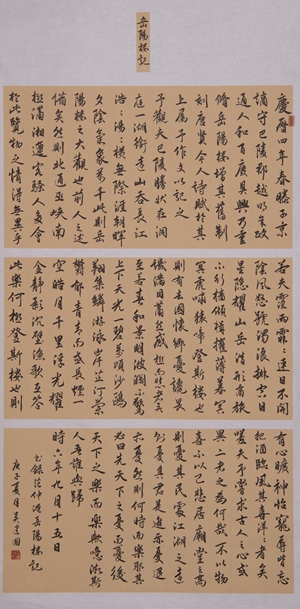 岳陽樓記
慶曆四年春滕子京
謫守巴陵郡越明年政
通人和百廢具興乃重
修岳陽樓增其舊制
刻唐賢今人詩賦於其
上屬予作文以記之
予觀夫巴陵勝狀在洞
庭一湖銜遠山吞長江
浩浩湯湯橫無際涯朝暉
夕陰氣象萬千此則岳
陽樓之大觀也前人之述
備矣然則北通巫峽南
極瀟湘遷客騷人多會
於此覽物之情得無異乎
若夫霪雨霏霏連月不開
陰風怒號濁浪排空日
星隱耀山岳潛形商旅
不行檣傾楫摧薄暮冥
冥虎嘯猿啼登斯樓也
則有去國懷鄉憂讒畏
譏滿目蕭然感極而悲者矣
至若春和景明波瀾不驚
上下天光一碧萬頃沙鷗
翔集錦鱗游泳岸芷汀蘭
鬱郁青青而或長煙一
空皓月千里浮光耀
金靜影沉璧漁歌互答
此樂何極登斯樓也則
有心曠神怡寵辱皆忘
把酒臨風其喜洋洋者矣
嗟夫予嘗求古人之心或
異二者之為何哉不以物
喜不以己悲居廟堂之高
則憂其民處江湖之遠
則憂其君是進亦憂退
亦憂然則何時而樂耶其
必曰先天下之憂而憂後
天下之樂而樂歟噫微斯
人吾誰與歸
時六年九月十五日
書錄范仲淹岳陽樓記
庚子夏月